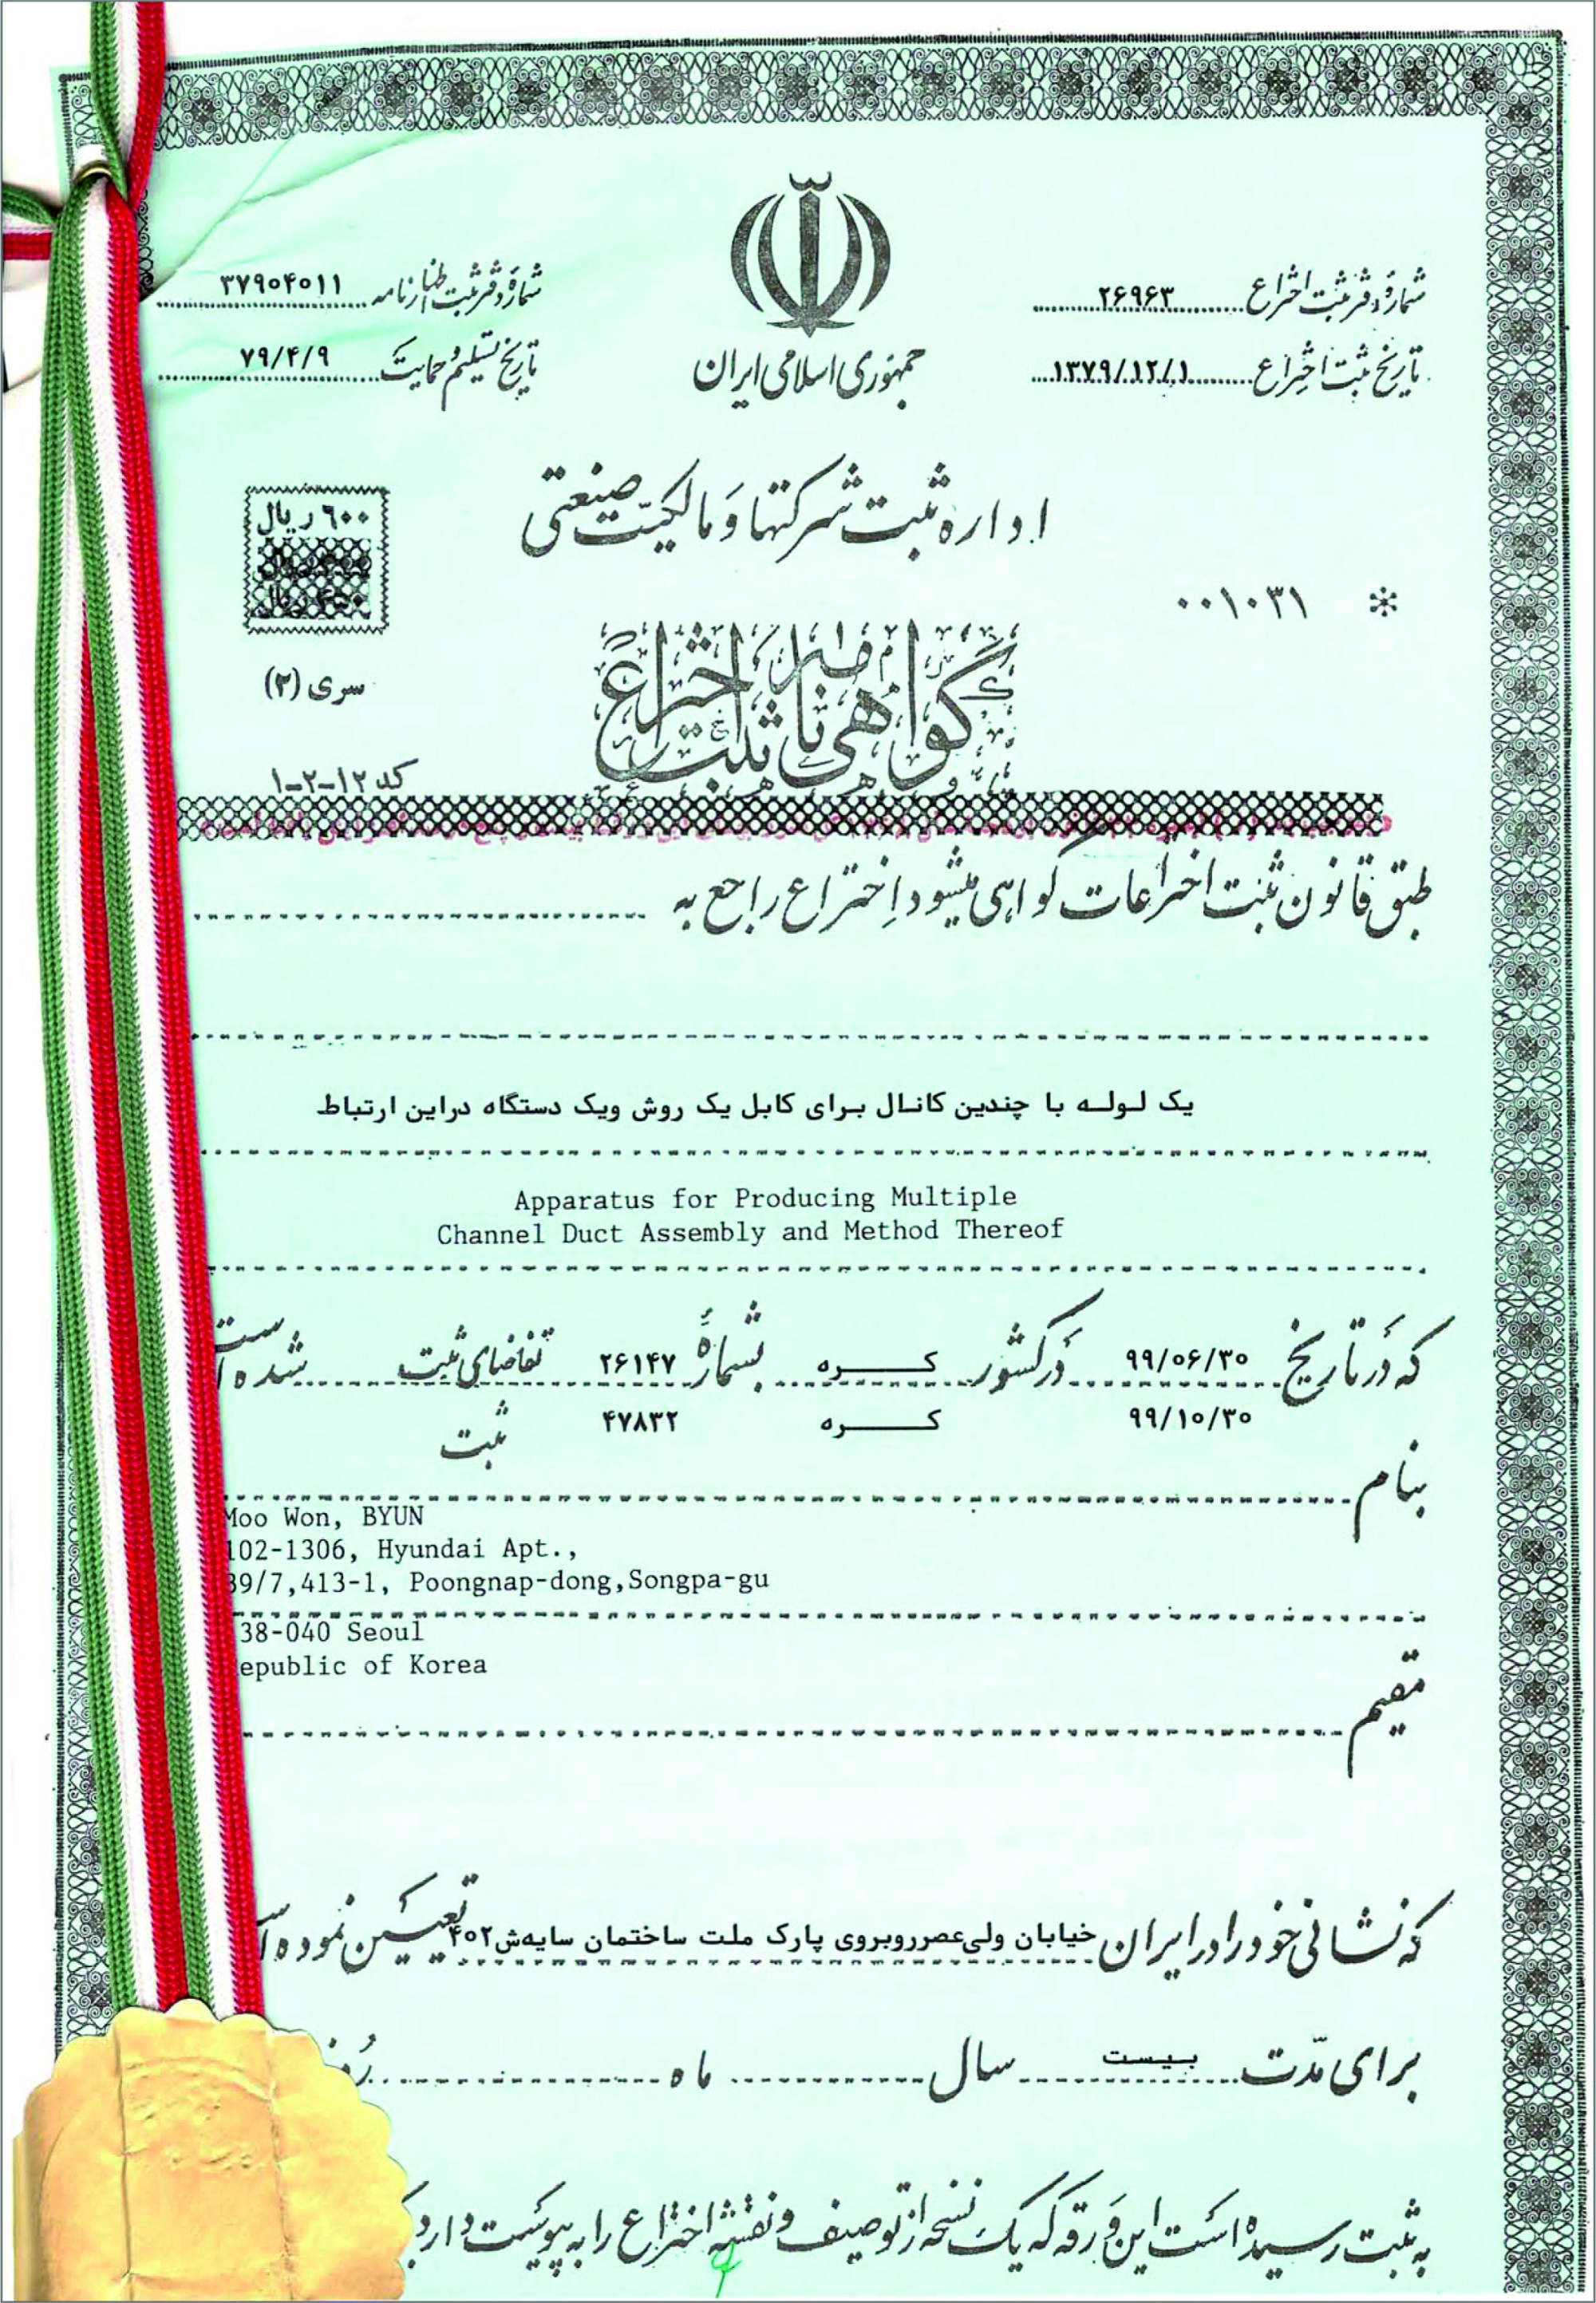 شماره دفتر ثبت اختراع ۲۶۹۶۳
تاریخ ثبت اختراع ۱۳۷۹/۱۲/۱
شماره دفتر ثبت اظهارنامه ۳۷۹۰۴۰۱۱
تاریخ تسلیم و حمایت ۷۹/۴/۹
جمهوری اسلامی ایران
اداره ثبت شرکتها و مالکیت صنعتی
۶۰۰ ریال
۰۰۱۰۳۱
گواهی نامه ثبت اختراع
سری (۲)
کد ۱۲-۲-۱
طبق قانون ثبت اختراعات گواهی میشود اختراع راجع به
یک لوله با چندین کانال برای کابل یک روش ویک دستگاه دراین ارتباط
Apparatus for Producing Multiple
Channel Duct Assembly and Method Thereof
که در تاریخ ۹۹/۰۶/۳۰ در کشور کره بشماره ۲۶۱۴۷ تقاضای ثبت شده
۹۹/۱۰/۳۰ کره ۴۷۸۳۲ ثبت
بنام
Moo Won, BYUN
102-1306, Hyundai Apt.,
39/7,413-1, Poongnap-dong,Songpa-gu
38-040 Seoul
epublic of Korea
مقیم
که نشانی خود را در ایران خیابان ولی‌عصرروبروی پارک ملت ساختمان سایه‌ش۴۰۲ تعیین نموده
برای مدت بیست سال ماه
به ثبت رسیده است این ورقه که یک نسخه از توصیف و نقشه اختراع را به پیوست دارد